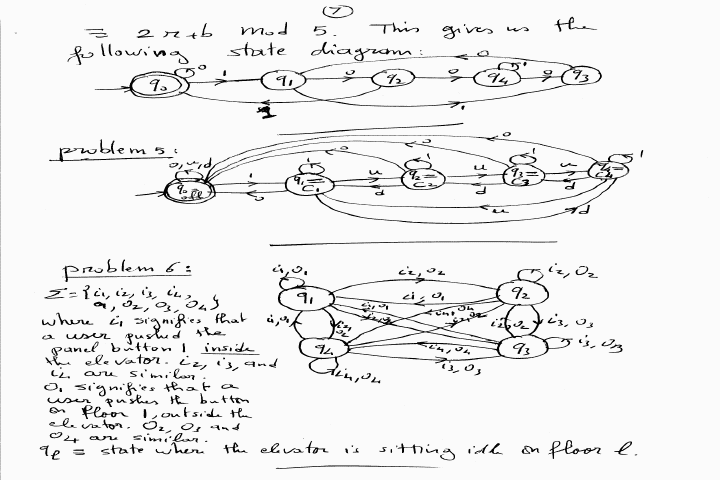 7
≡ 2r+b mod 5. This gives us the
following state diagram:
q0 0 1 q1 0 q2 0 q4 1 0 q3 0
1 1
problem 5:
0,u,d q0 off 1 0 q1= C1 1 u d q2= C2 1 u d q3= C3 1 u d 1
0 0 0 u d
problem 6:
Σ={i1, i2, i3, i4,
O2, O3, O4}
where i1 signifies that
a user pushed the
panel button 1 inside
the elevator. i2, i3, and
i4 are similar.
O1 signifies that a
user pushes the button
on floor 1, outside the
elevator. O2, O3 and
O4 are similar.
qℓ ≡ state where the elevator is sitting idle on floor ℓ.
i1,O1 q1 i2,O2 q2 i2,O2
i1,O1
q4 i4,O4 q3 i3,O3
i4,O4 i3,O3